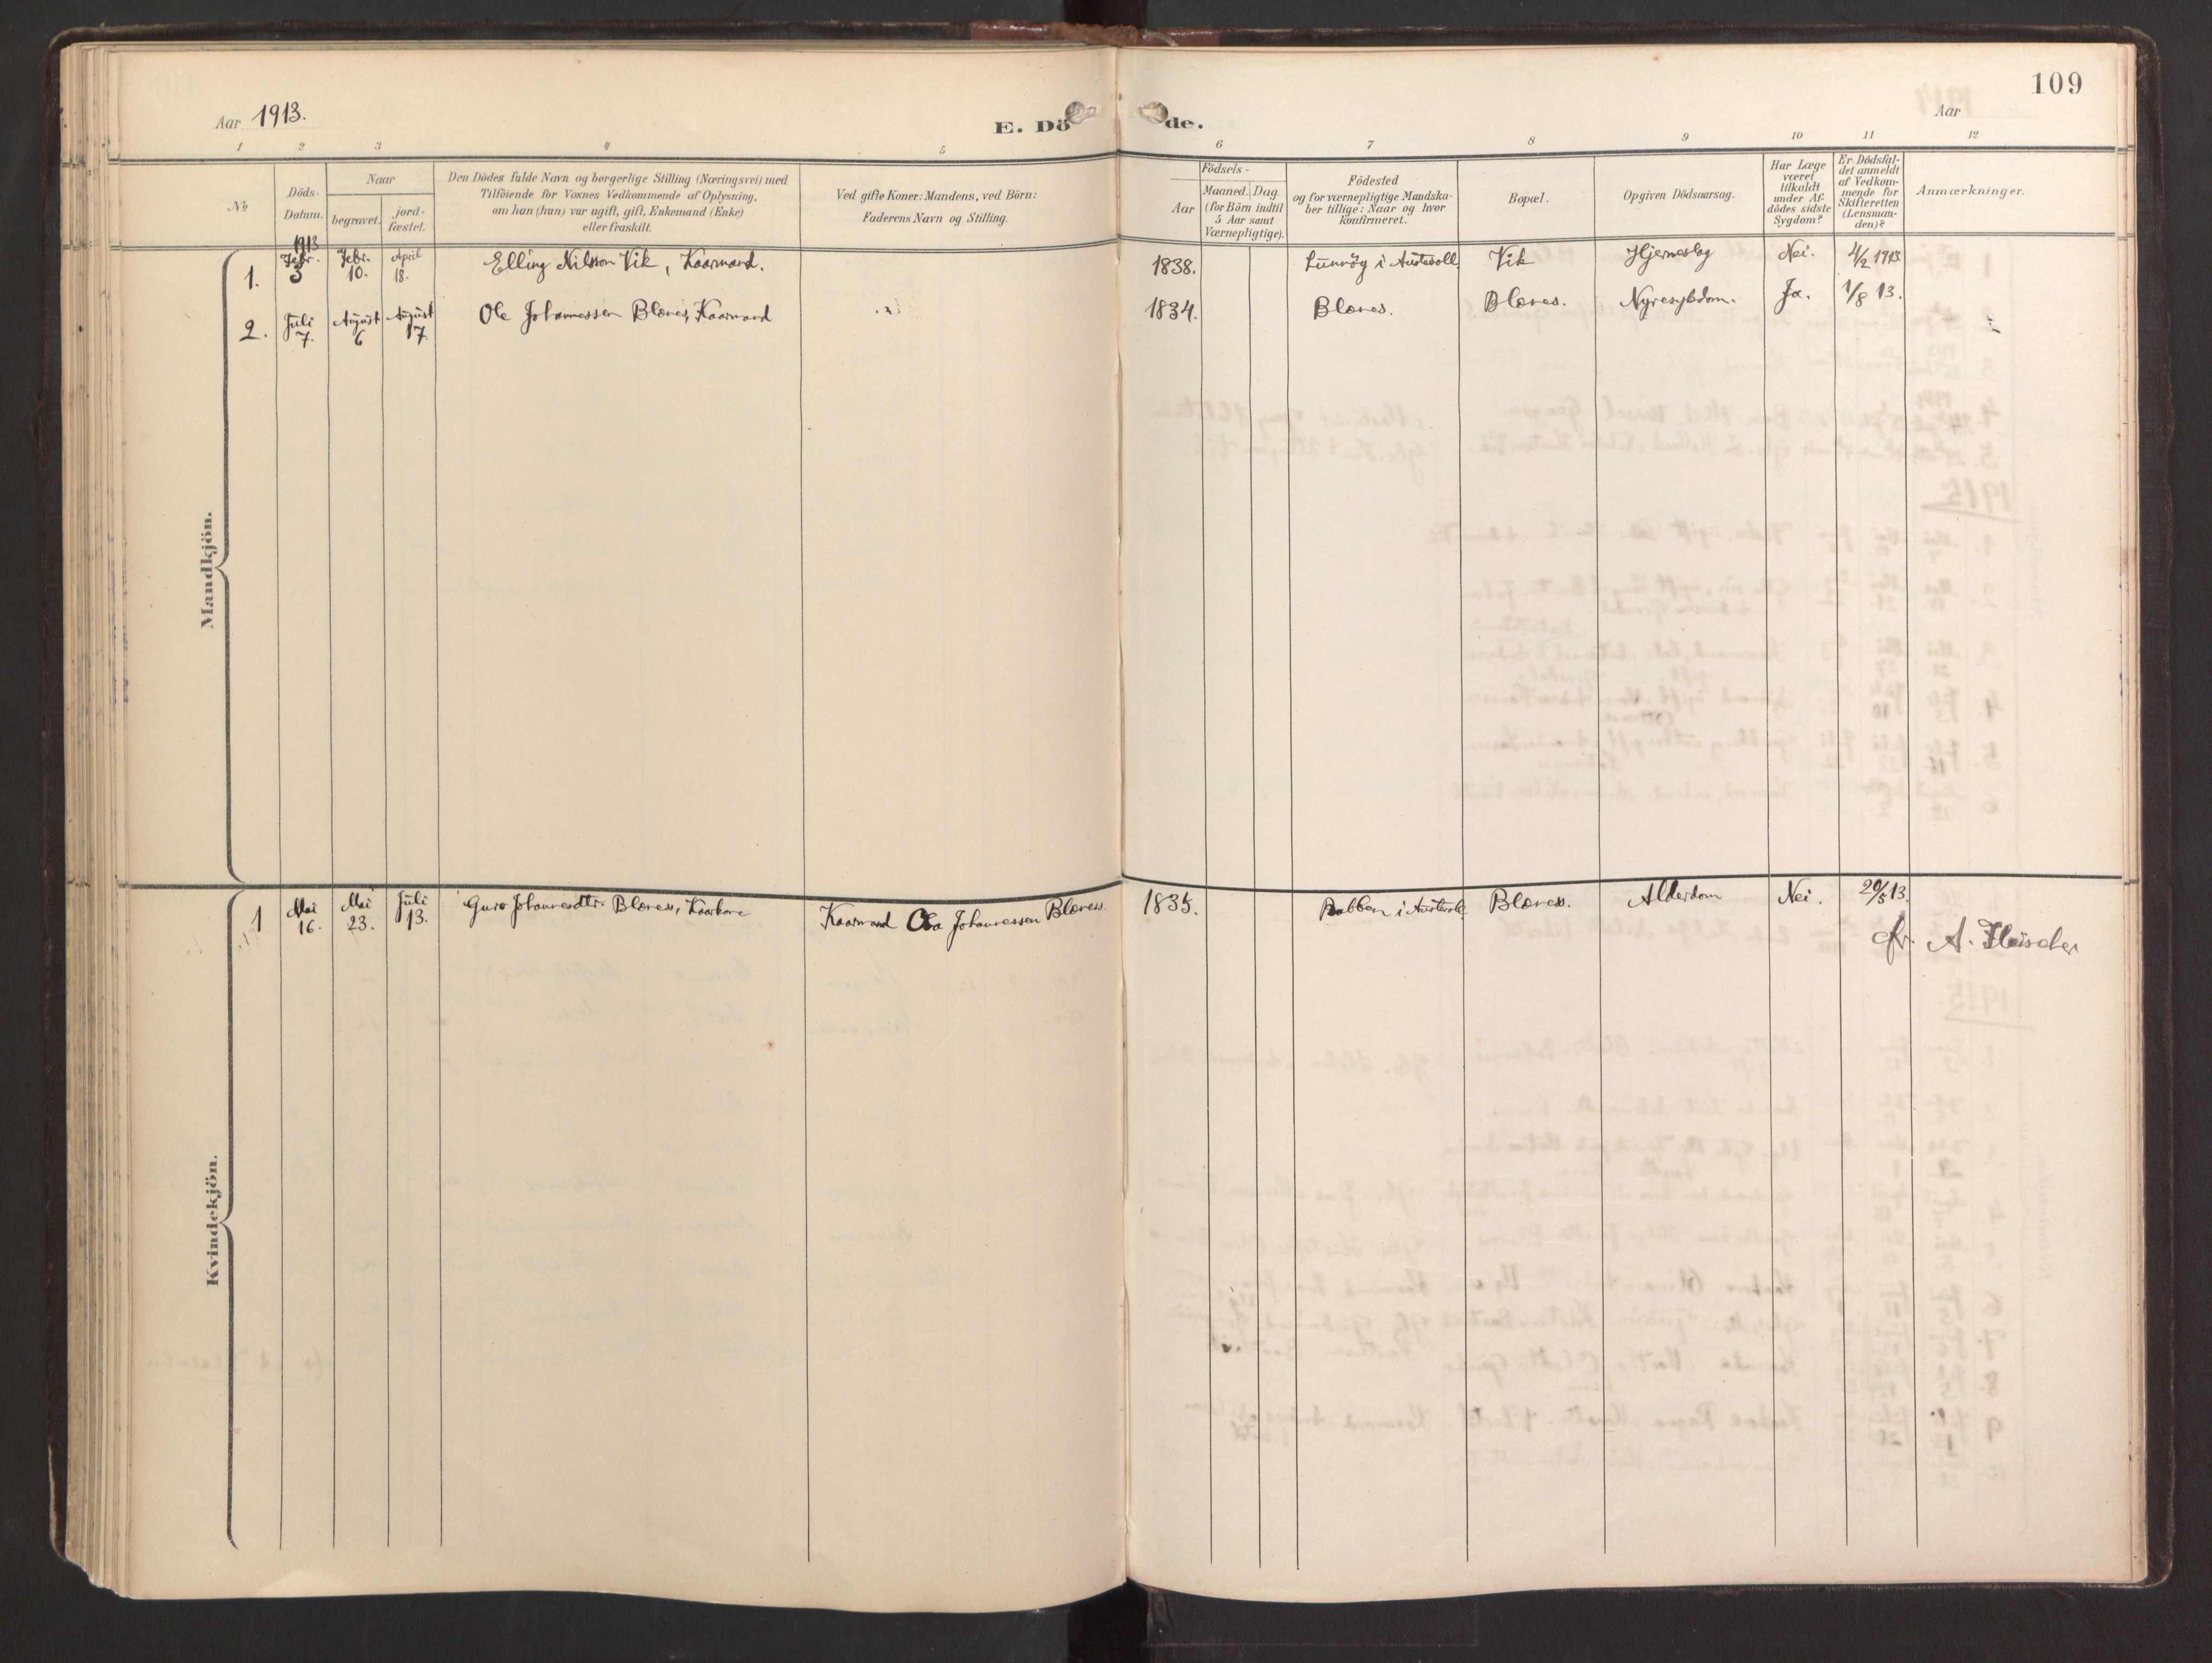 109
Aar 1913.
E. Döde.
Aar
1 2 3 4 5 6 7 8 9 10 11 12
No
Döds-
Datum.
Naar
begravet.
jord-
fæstet.
Den Dödes fulde Navn og borgerlige Stilling (Næringsvei) med
Tilföiende for Voxnes Vedkommende af Oplysning,
om han (hun) var ugift, gift, Enkemand (Enke)
eller fraskilt.
Ved gifte Koner: Mandens, ved Börn:
Faderens Navn og Stilling.
Födsels-
Aar
Maaned. Dag.
(for Börn indtil
5 Aar samt
Værnepligtige).
Födested
og for værnepligtige Mandska-
ber tillige: Naar og hvor
konfirmeret.
Bopæl.
Opgiven Dödsaarsag.
Har Læge
været
tilkaldt
under Af-
dödes sidste
Sygdom?
Er Dödsfal-
det anmeldt
af Vedkom-
mende for
Skifteretten
(Lensman-
den)?
Anmærkninger.
Mandkjön.
1913
1. Febr. 3 Febr. 10. April 18. Elling Nilsson Vik, Kaarmand. 1838. Lunnöy i Austevoll Vik Hjerneslag Nei. 4/2 1913
2. Juli 7. August 6 August 17 Ole Johannessen Blænes, Kaarmand 1834. Blænes. Blænes. Nyresykdom. Ja. 1/8 13.
Kvindekjön.
1 Mai 16. Mai 23. Juli 13. Guro Johannesdtr. Blæness, Kaarkone Kaarmand Ola Johannessen Blæness. 1835. Bakken i Austevoll Blæness. Alderdom Nei. 20/5 13.
A. Fleischer